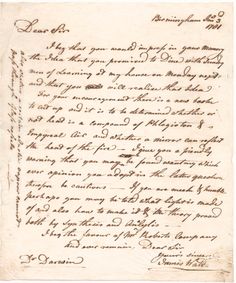 Birmingham
1781
Dear Sir
I beg that you would impress on your memory
the Idea that you promised to Dine with
men of learning at my house on Monday next
and that you will realize this Idea
For your encouragement there is a new book
to cut up and it is to be determined whether or
not heat is a compound of Phlogiston &
Empyreal Air and whether a mirror can reflect
the heat of the fire — I give you a friendly
warning that you may be found wanting which
ever opinion you adopt in the latter question
therefore be cautious — If you are meek & humble
perhaps you may be told what light is made
of and also how to make it & the theory proved
both by Synthesis and Analysis
I beg the favour of Mr Company
and ever remain Dear Sir
Yours
James Watt
Dr Darwin